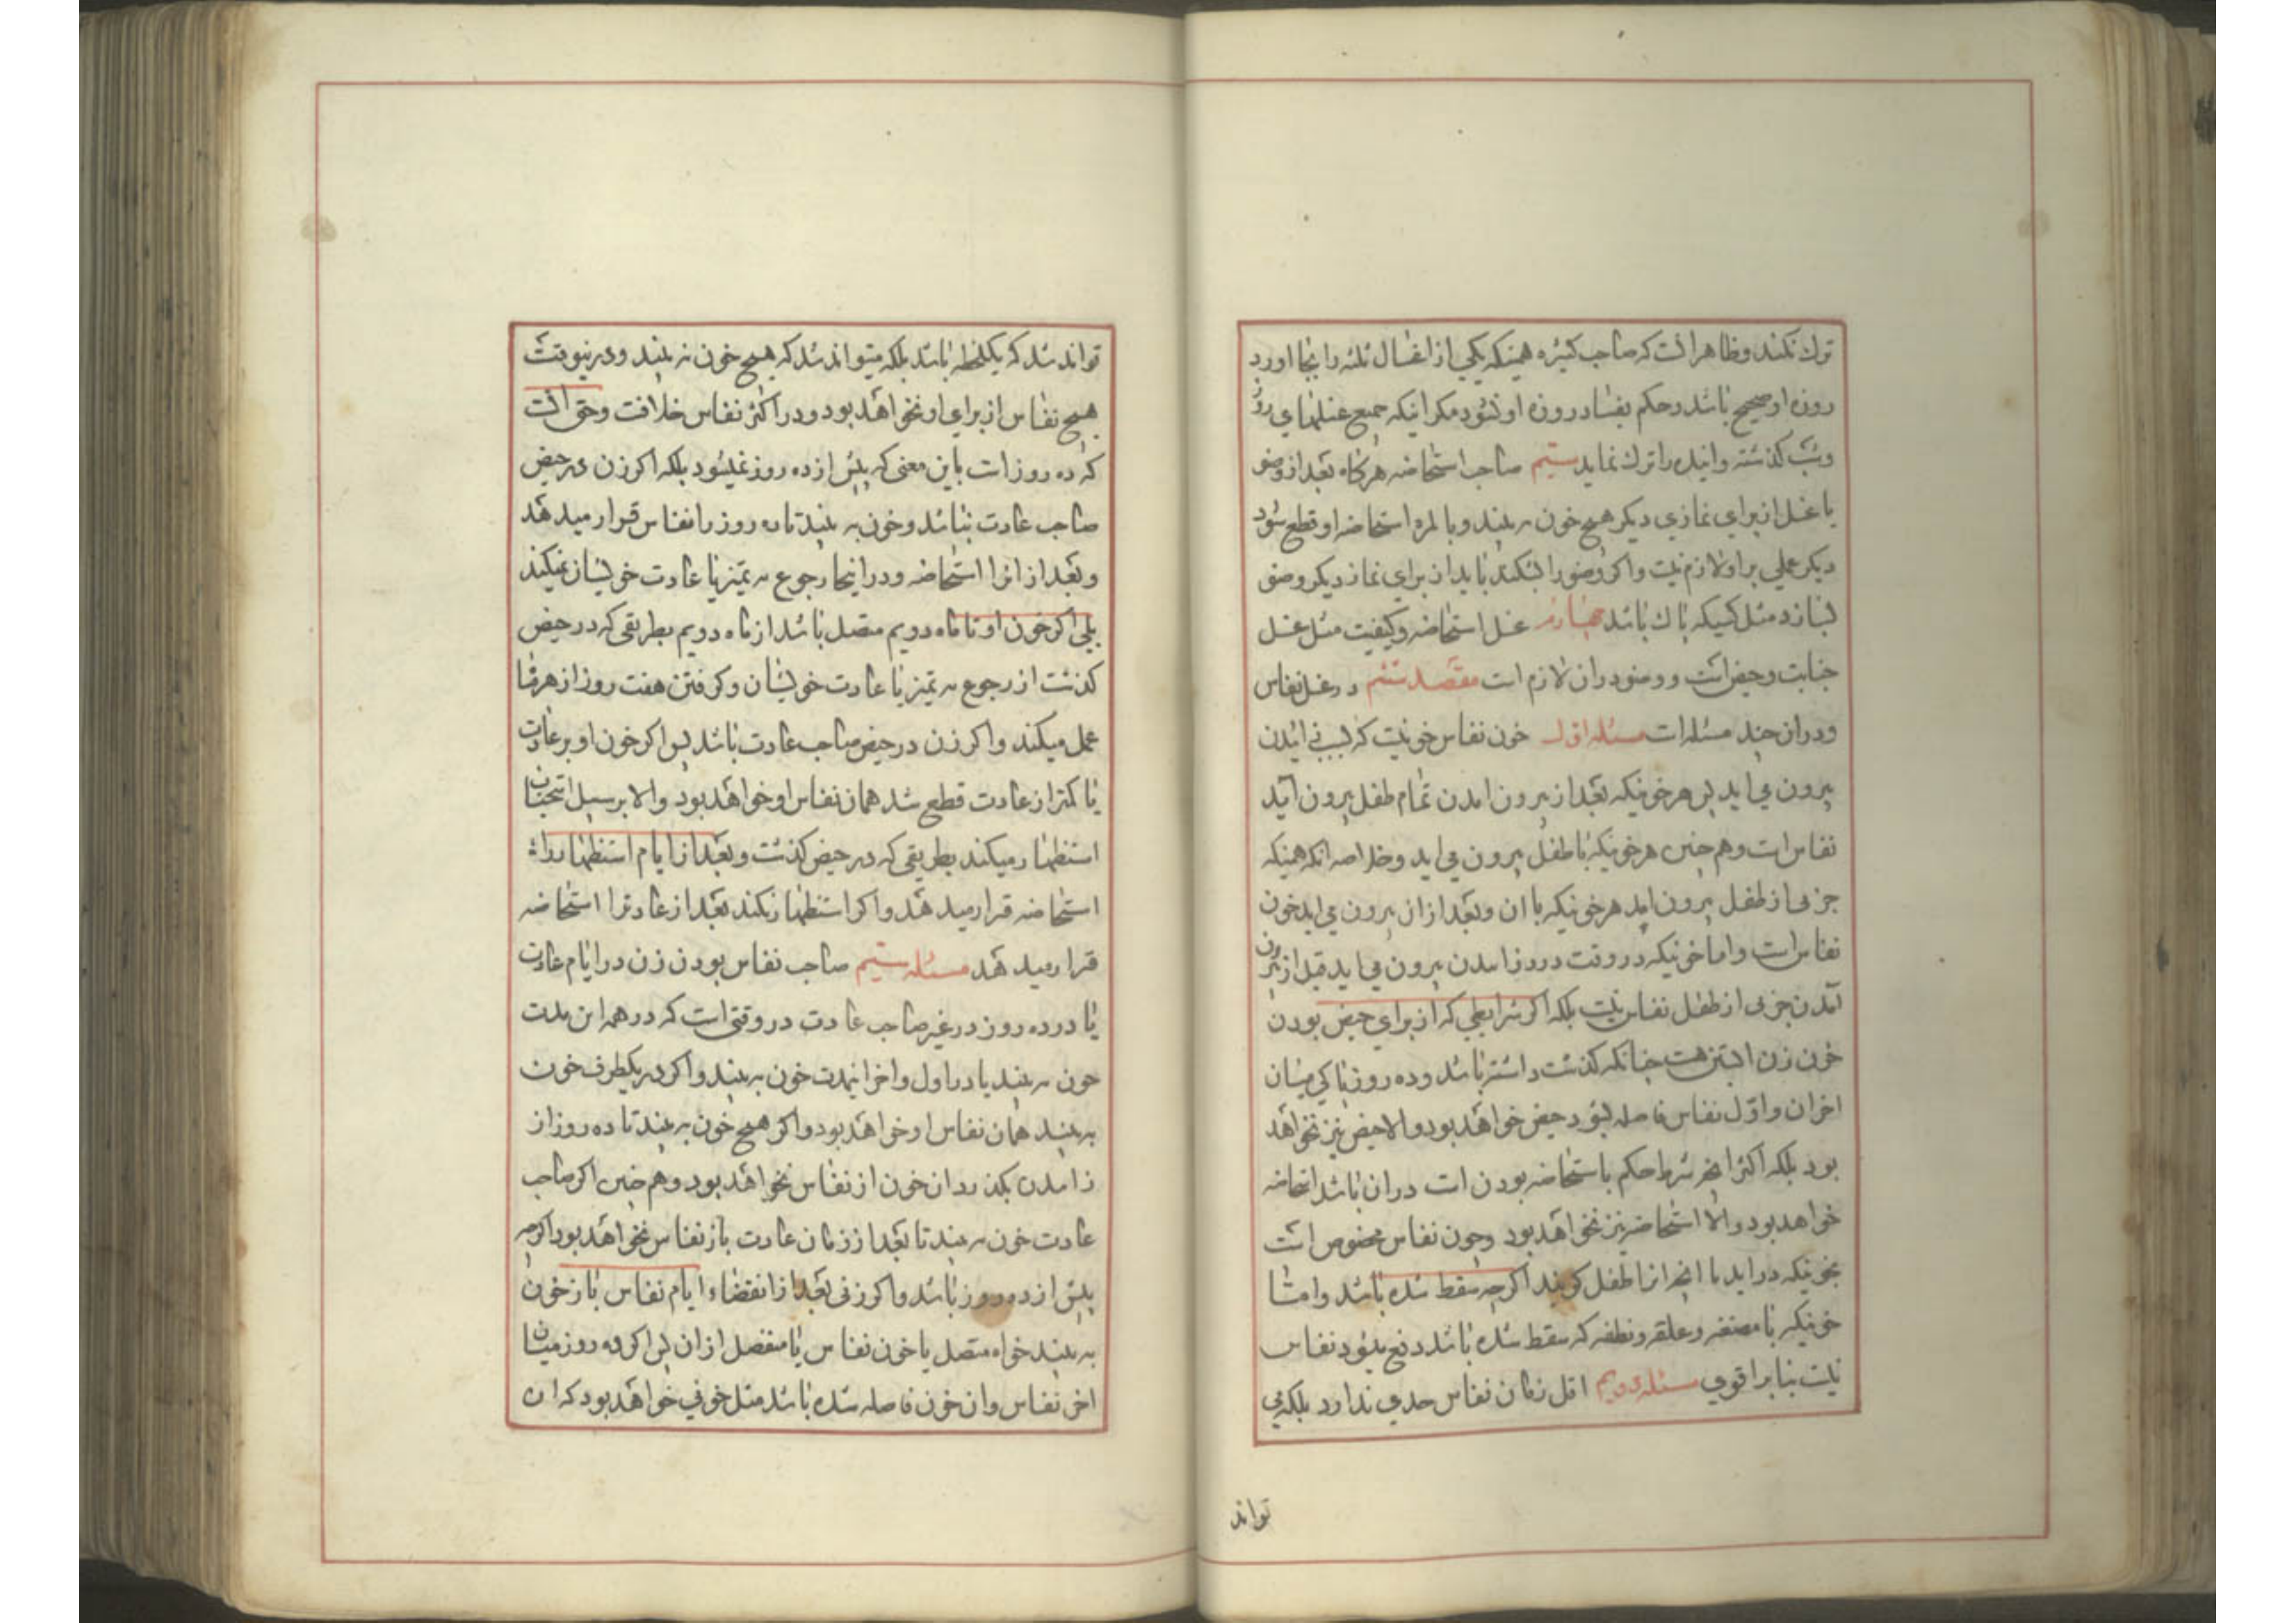 ترك نکند وظاهر انست که صاحب کثیره همینکه یکی از اغسال ثلثه را بجا اورد
روزه او صحیح باشد و حکم بفساد روزه او نشود مکر اینکه جمیع غسلهای روز
وشب کذشته واینده را ترك نماید سیم صاحب استحاضه هرکاه بعد از وضو
یا غسل از برای نمازی دیکر هیچ خون نه بیند وبالمره استحاضه او قطع شود
دیکر عملی بر او لازم نیست واکر وضو را بشکند باید از برای نماز دیکر وضو
بسازد مثل کسیکه پاك باشد چهارم غسل استحاضه وکیفیت مثل غسل
جنابت وحیض است و وضو در ان لازم است مقصد ششم در غسل نفاس
ودر ان چند مسئله است مسئله اول خون نفاس خونیست که بسبب زائیدن
بیرون می اید پس هر خونیکه بعد از بیرون امدن تمام طفل بیرون آید
نفاس است وهم چنین هر خونیکه با طفل بیرون می اید وخلاصه انکه همینکه
جزیی از طفل بیرون اید هر خونیکه با ان وبعد از ان بیرون می اید خون
نفاس است واما خونیکه در وقت درد زائیدن بیرون می اید قبل از بیرون
آمدن جزیی از طفل نفاس نیست بلکه اکر شرایطی که از برای حیض بودن
خون زن ابستن هست چنانکه کذشت داشته باشد وده روز پاکی میان
اخر ان واوّل نفاس فاصله بشود حیض خواهد بود والا حیض نیز نخواهد
بود بلکه اکر انچه شرط حکم باستحاضه بودن است در ان باشد استحاضه
خواهد بود والا استحاضه نیز نخواهد بود وچون نفاس مخصوص است
بخونیکه در اید با انچه انرا طفل کویند اکرچه سقط شده باشد وامثا
خونیکه با مضغه وعلقه ونطفه که سقط شده باشد دفع میشود نفاس
نیست بنا بر اقوی مسئله دویم اقل زمان نفاس حدی ندارد بلکه می
تواند
تواند شد که یکلحظه باشد بلکه میتواند شد که هیچ خون نه بیند ودرینوقت
هیچ نفاس از برای او نخواهد بود ودر اکثر نفاس خلافست وحق انست
که ده روز است باین معنی که بیش از ده روز نمیشود بلکه اکر زن در حیض
صاحب عادت نباشد وخون به بیند تا ده روز را نفاس قرار میدهد
وبعد از انرا استحاضه ودر اینجا رجوع به تمیز یا عادت خویشان نمیکند
بلی اکر خون او تا ماه دویم متصل باشد از ماه دویم بطریقی که در حیض
کذشت از رجوع به تمیز یا عادت خویشان وکرفتن هفت روز از هر ماه
عمل میکند واکر زن در حیض صاحب عادت باشد پس اکر خون او بر عادت
یا کمتر از عادت قطع شد همان نفاس او خواهد بود والا بر سبیل استحباب
استظهار میکند بطریقی که در حیض کذشت وبعد از ایام استظهار را
استحاضه قرار میدهد واکر استظهار نکند بعد از عادترا استحاضه
قرار میدهد مسئله سیم صاحب نفاس بودن زن در ایام عادت
یا در ده روز در غیر صاحب عادت در وقتی است که در همه این مدت
خون به بیند یا در اول واخر اینمدت خون به بیند واکر در یکطرف خون
به بیند همان نفاس او خواهد بود واکر هیچ خون نه بیند تا ده روز از
زائیدن بکذرد ان خون از نفاس نخواهد بود وهم چنین اکر صاحب
عادت خون نه بیند تا بعد از زمان عادت باز نفاس نخواهد بود اکرچه
پیش از ده روز باشد واکر زنی بعد از انقضاء ایام نفاس باز خون
به بیند خواه متصل با خون نفاس یا منفصل از ان پس اکر ده روز میان
اخر نفاس وان خون فاصله شده باشد مثل خونی خواهد بود که ان